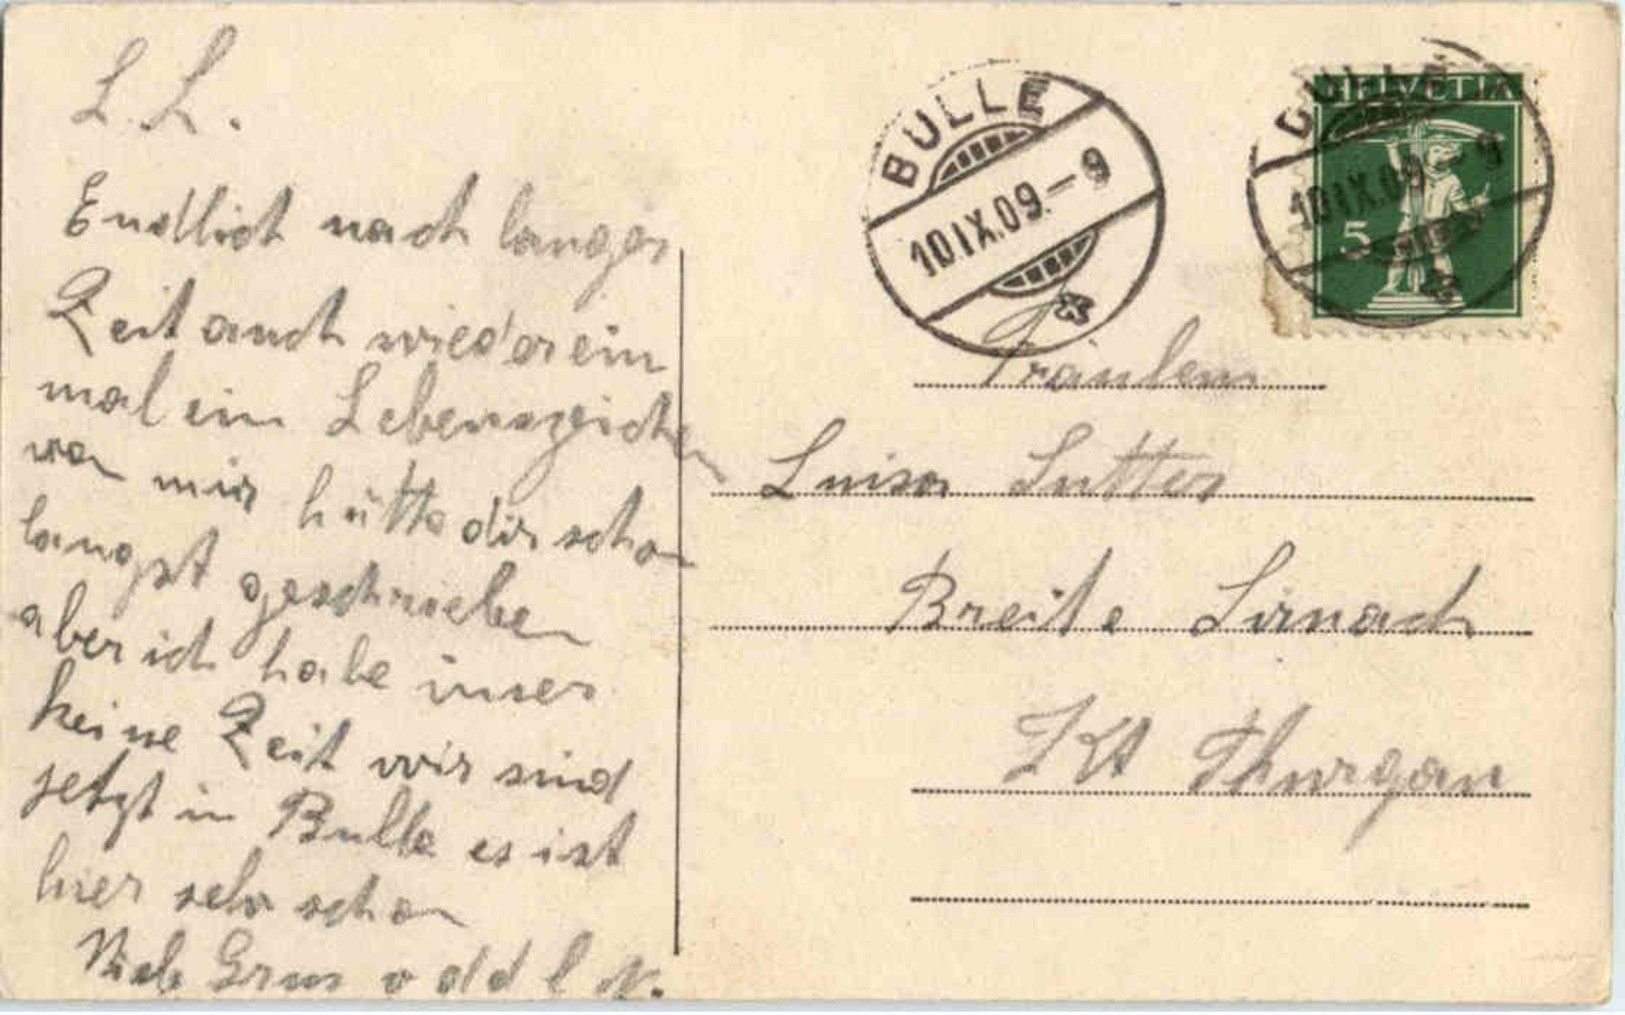 L. L.
Endlich nach langer
Zeit auch wieder ein
mal ein Lebenszeichen
von mir hätte dir schon
langst geschrieben
aber ich habe imser
keine Zeit wir sind
jetzt in Bulle es ist
hier sehr schon
Viele Grus v d d l N.
BULLE
10.IX.09.-9
BULLE
10.IX.09.-9
HELVETIA
5
Fräulein
Luisa Sutter
Breite Sirnach
Kt Thurgau